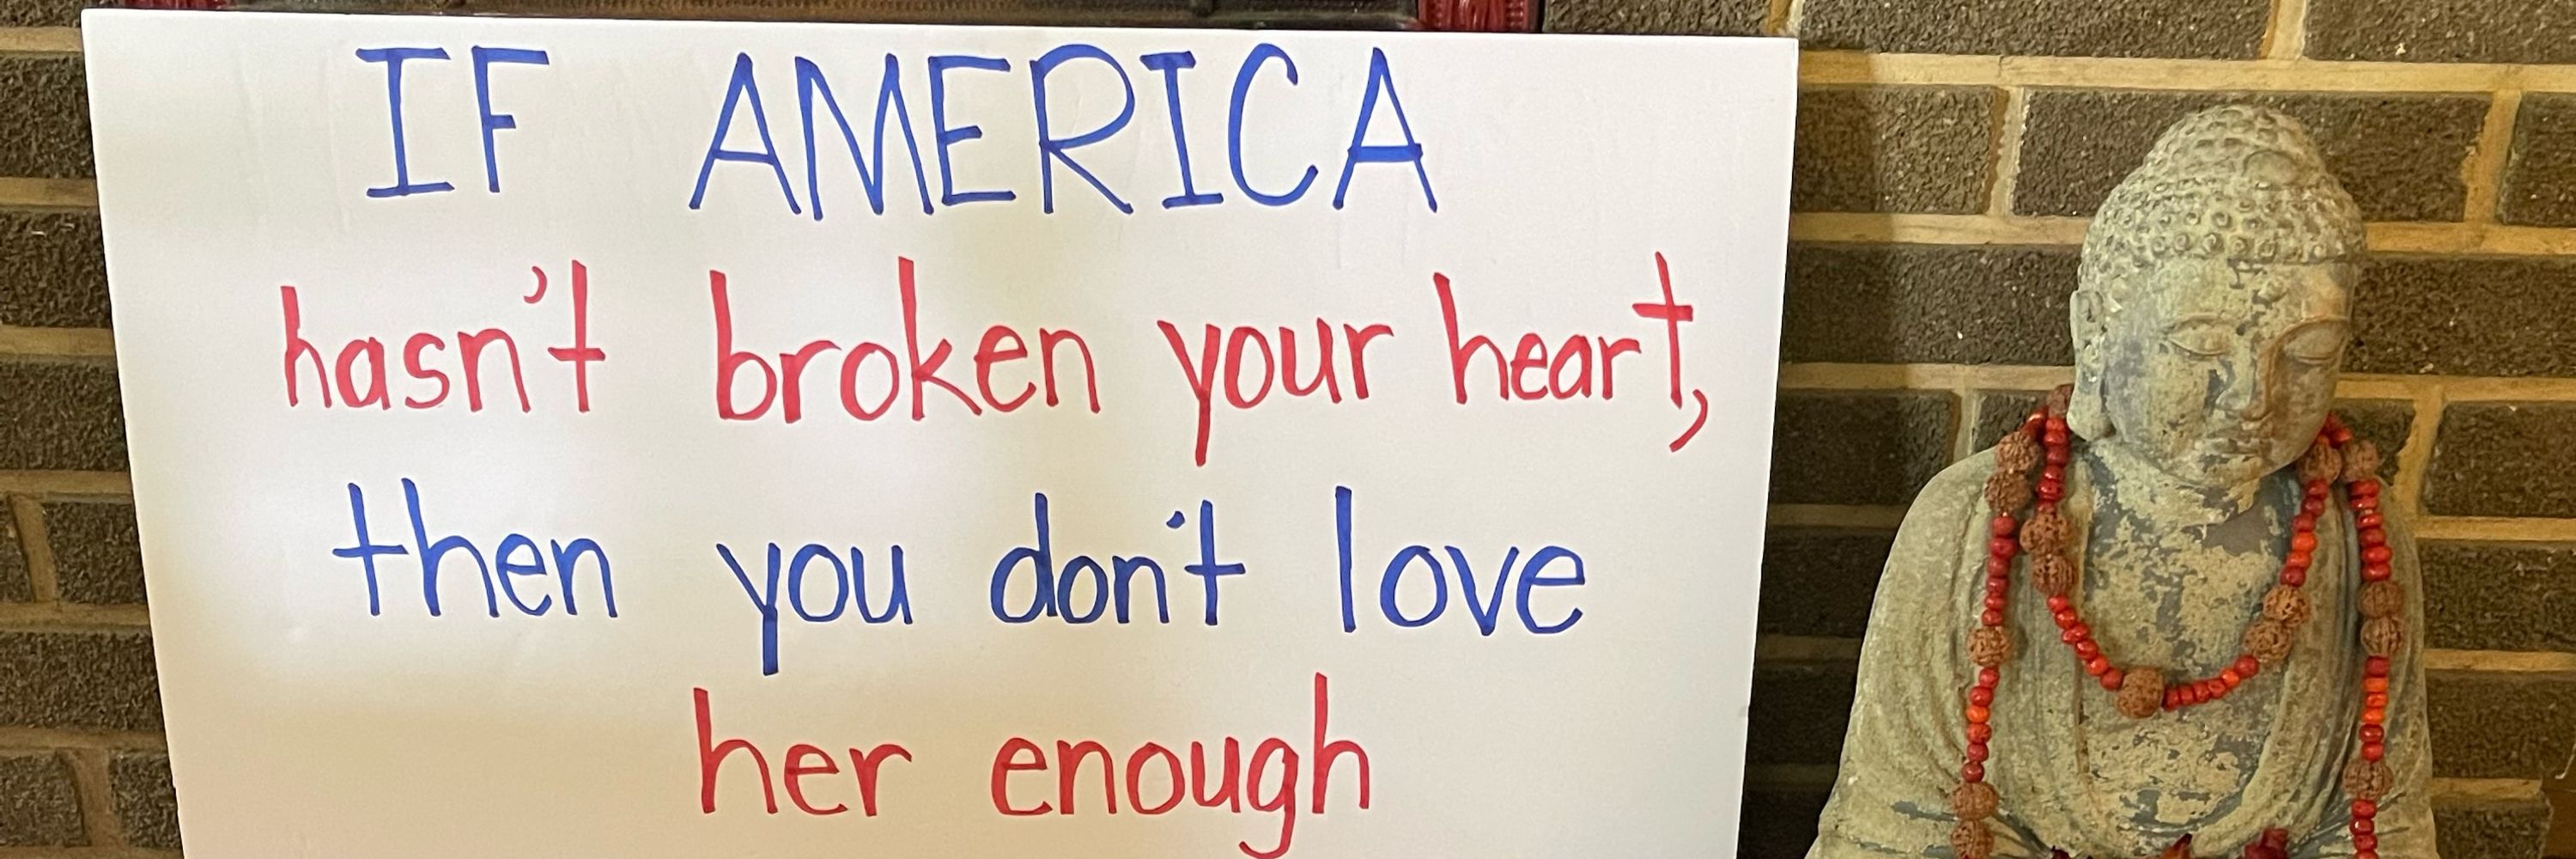 IF AMERICA
hasn't broken your heart,
then you don't love
her enough